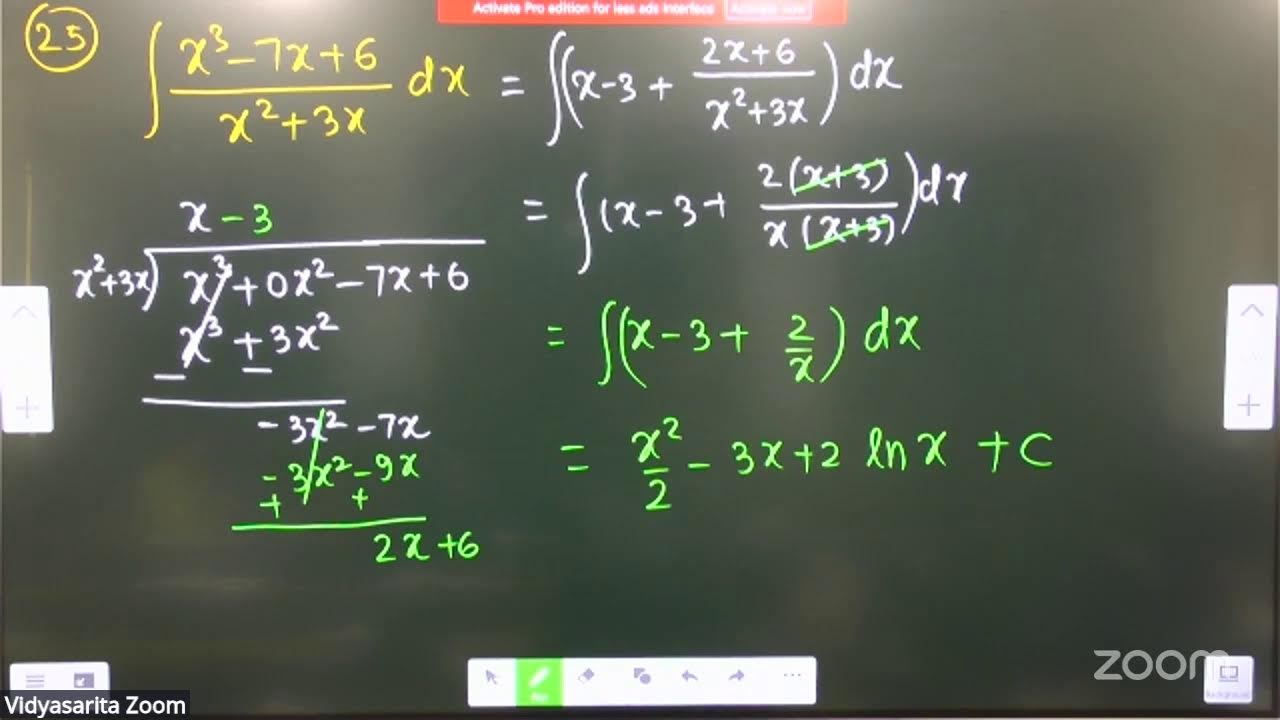 Activate Pro edition for less ads interface
(25) ∫ (x³ - 7x + 6)/(x² + 3x) dx = ∫(x - 3 + (2x + 6)/(x² + 3x)) dx
= ∫(x - 3 + 2(x+3)/(x(x+3))) dx
= ∫(x - 3 + 2/x) dx
= x²/2 - 3x + 2 ln x + C
x - 3
x² + 3x) x³ + 0x² - 7x + 6
x³ + 3x²
- -
- 3x² - 7x
- 3x² - 9x
+ +
2x + 6
zoom
Background
Vidyasarita Zoom